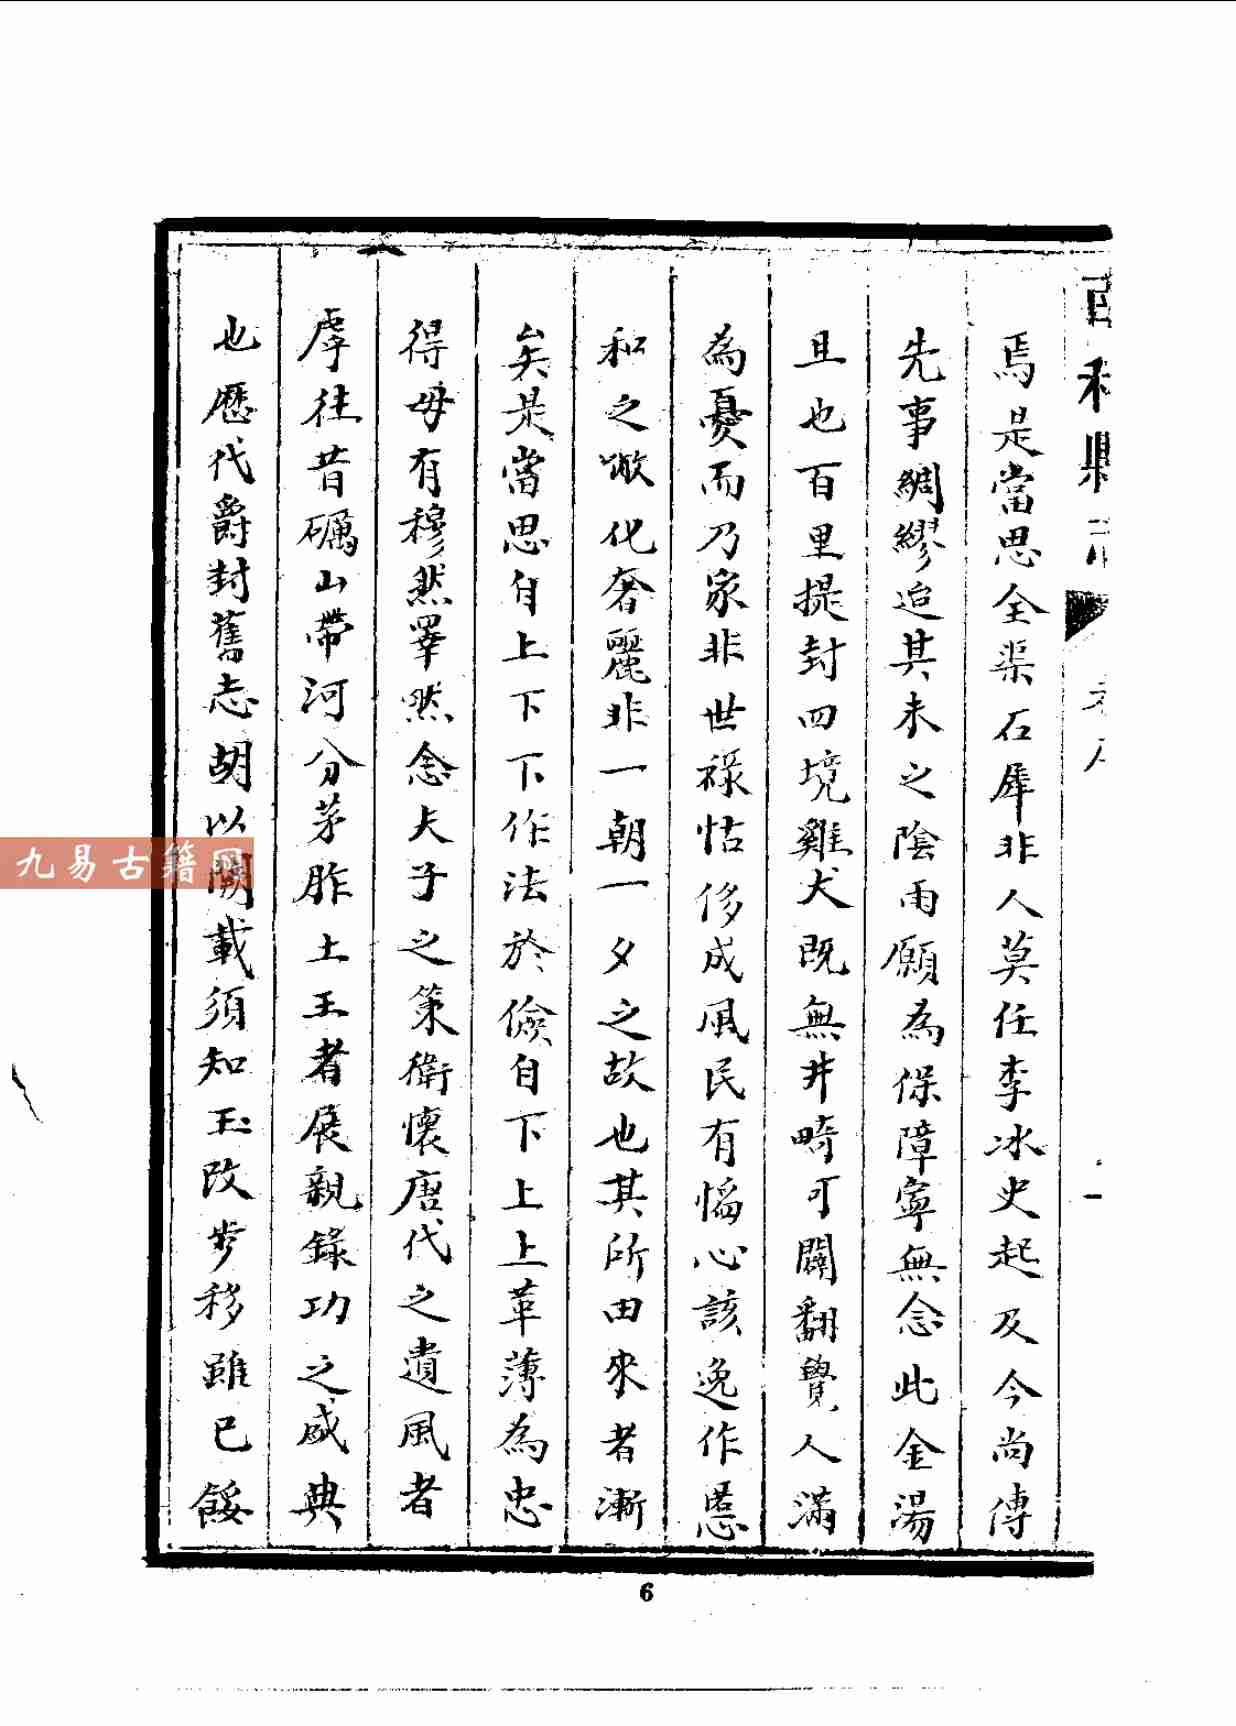 焉是當思全渠石犀非人莫任李冰史起及今尚傳
先事綢繆迨其未之陰雨願為保障寧無念此金湯
且也百里提封四境雞犬既無井畸可闢翻覺人滿
為憂而乃家非世祿怙侈成風民有慆心該逸作慝
和之敝化奢麗非一朝一夕之故也其所田來者漸
矣是當思自上下下作法於儉自下上上革薄為忠
得毋有穆然睪然念夫子之策衛懷唐代之遺風者
虖往昔礪山帶河分茅胙土王者展親錄功之盛典
也歷代爵封舊志胡以闕載須知玉改步移雖已餒
6
九易古籍网